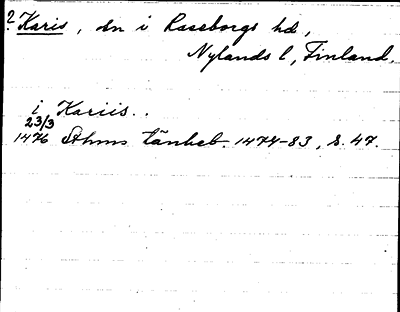 ? Karis, sn i Raseborgs hd,
Nylands l, Finland.
i Kariis..
23/3
1476 Sthms tänkeb. 1474-83, s. 47.